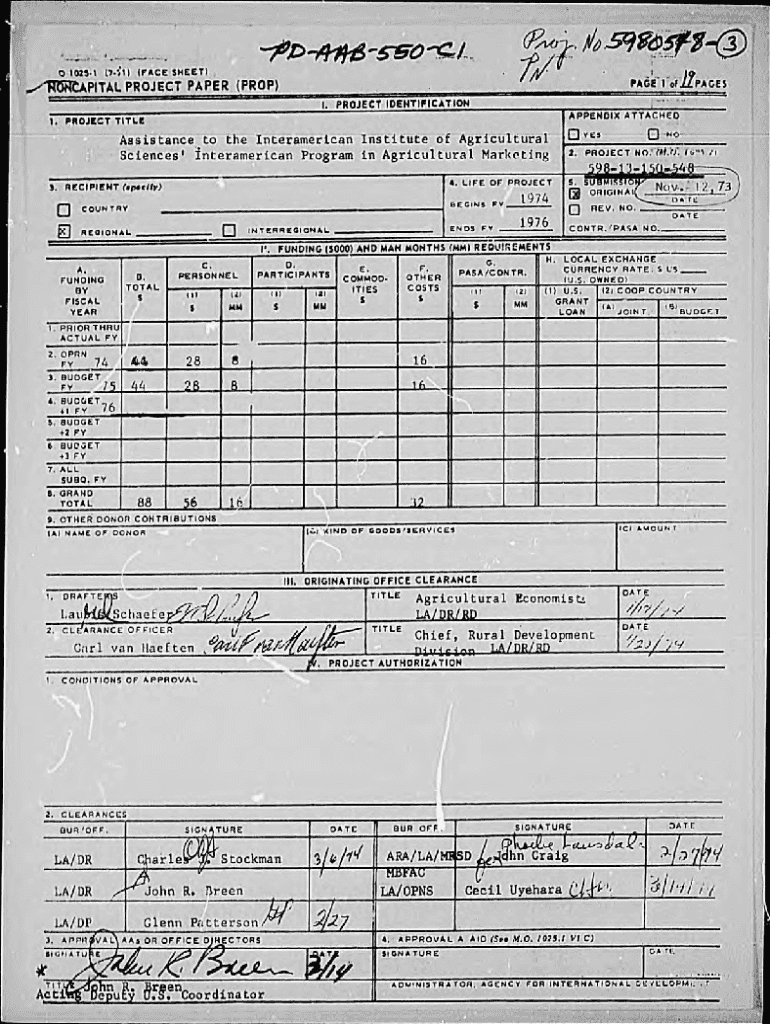 PD-AAB-550-C1
Proj. No 5980548-③
PN
D 1025-1 (7-71) (FACE SHEET)
NONCAPITAL PROJECT PAPER (PROP)
PAGE 1 of 19 PAGES
I. PROJECT IDENTIFICATION
1. PROJECT TITLE
Assistance to the Interamerican Institute of Agricultural
Sciences' Interamerican Program in Agricultural Marketing
APPENDIX ATTACHED
YES NO
2. PROJECT NO.
598-13-150-548
3. RECIPIENT (specify)
COUNTRY
REGIONAL INTERREGIONAL
4. LIFE OF PROJECT
BEGINS FY 1974
ENDS FY 1976
5. SUBMISSION
ORIGINAL Nov. 12, 73
DATE
REV. NO.
DATE
CONTR./PASA NO.
II. FUNDING ($000) AND MAN MONTHS (MM) REQUIREMENTS
A. FUNDING BY FISCAL YEAR
B. TOTAL $
C. PERSONNEL
(1) $ (2) MM
D. PARTICIPANTS
(1) $ (2) MM
E. COMMODITIES $
F. OTHER COSTS $
G. PASA/CONTR.
(1) $ (2) MM
H. LOCAL EXCHANGE CURRENCY RATE: $ US
(U.S. OWNED)
(1) U.S. GRANT LOAN
(2) COOP COUNTRY
(A) JOINT (B) BUDGET
1. PRIOR THRU ACTUAL FY
2. OPRN FY 74 44 28 8 16
3. BUDGET FY 75 44 28 8 16
4. BUDGET +1 FY 76
5. BUDGET +2 FY
6. BUDGET +3 FY
7. ALL SUBQ. FY
8. GRAND TOTAL 88 56 16 32
9. OTHER DONOR CONTRIBUTIONS
(A) NAME OF DONOR (B) KIND OF GOODS/SERVICES (C) AMOUNT
III. ORIGINATING OFFICE CLEARANCE
1. DRAFTERS
Schaefer
TITLE Agricultural Economists
LA/DR/RD
DATE
2. CLEARANCE OFFICER
Carl van Haeften Carl van Haeften
TITLE Chief, Rural Development
Division LA/DR/RD
DATE
IV. PROJECT AUTHORIZATION
1. CONDITIONS OF APPROVAL
2. CLEARANCES
BUR/OFF. SIGNATURE DATE BUR OFF. SIGNATURE DATE
LA/DR Charles Stockman 3/6/74 ARA/LA/MRSD for John Craig 2/27/74
MBFAC
LA/DR John R. Breen LA/OPNS Cecil Uyehara
LA/DP Glenn Patterson 2/27
3. APPROVAL AAs OR OFFICE DIRECTORS
4. APPROVAL A AID (See M.O. 1025.1 VI C)
SIGNATURE John R. Breen DATE 3/14
SIGNATURE DATE
* TITLE John R. Breen
Acting Deputy U.S. Coordinator
ADMINISTRATOR, AGENCY FOR INTERNATIONAL DEVELOPMENT